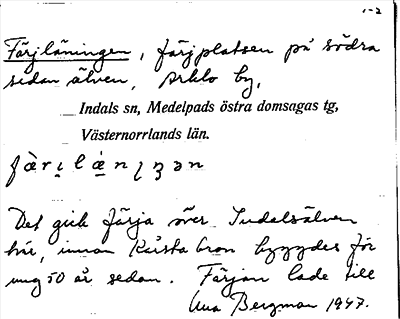 1-2
Färjläningen, färjplatsen på södra
sidan älven, Arklo by,
Indals sn, Medelpads östra domsagas tg,
Västernorrlands län.
Det gick färja över Indalsälven
här, innan Kårsta bron byggdes för
ung 50 år sedan. Färjan lade till
Una Bergman 1947.